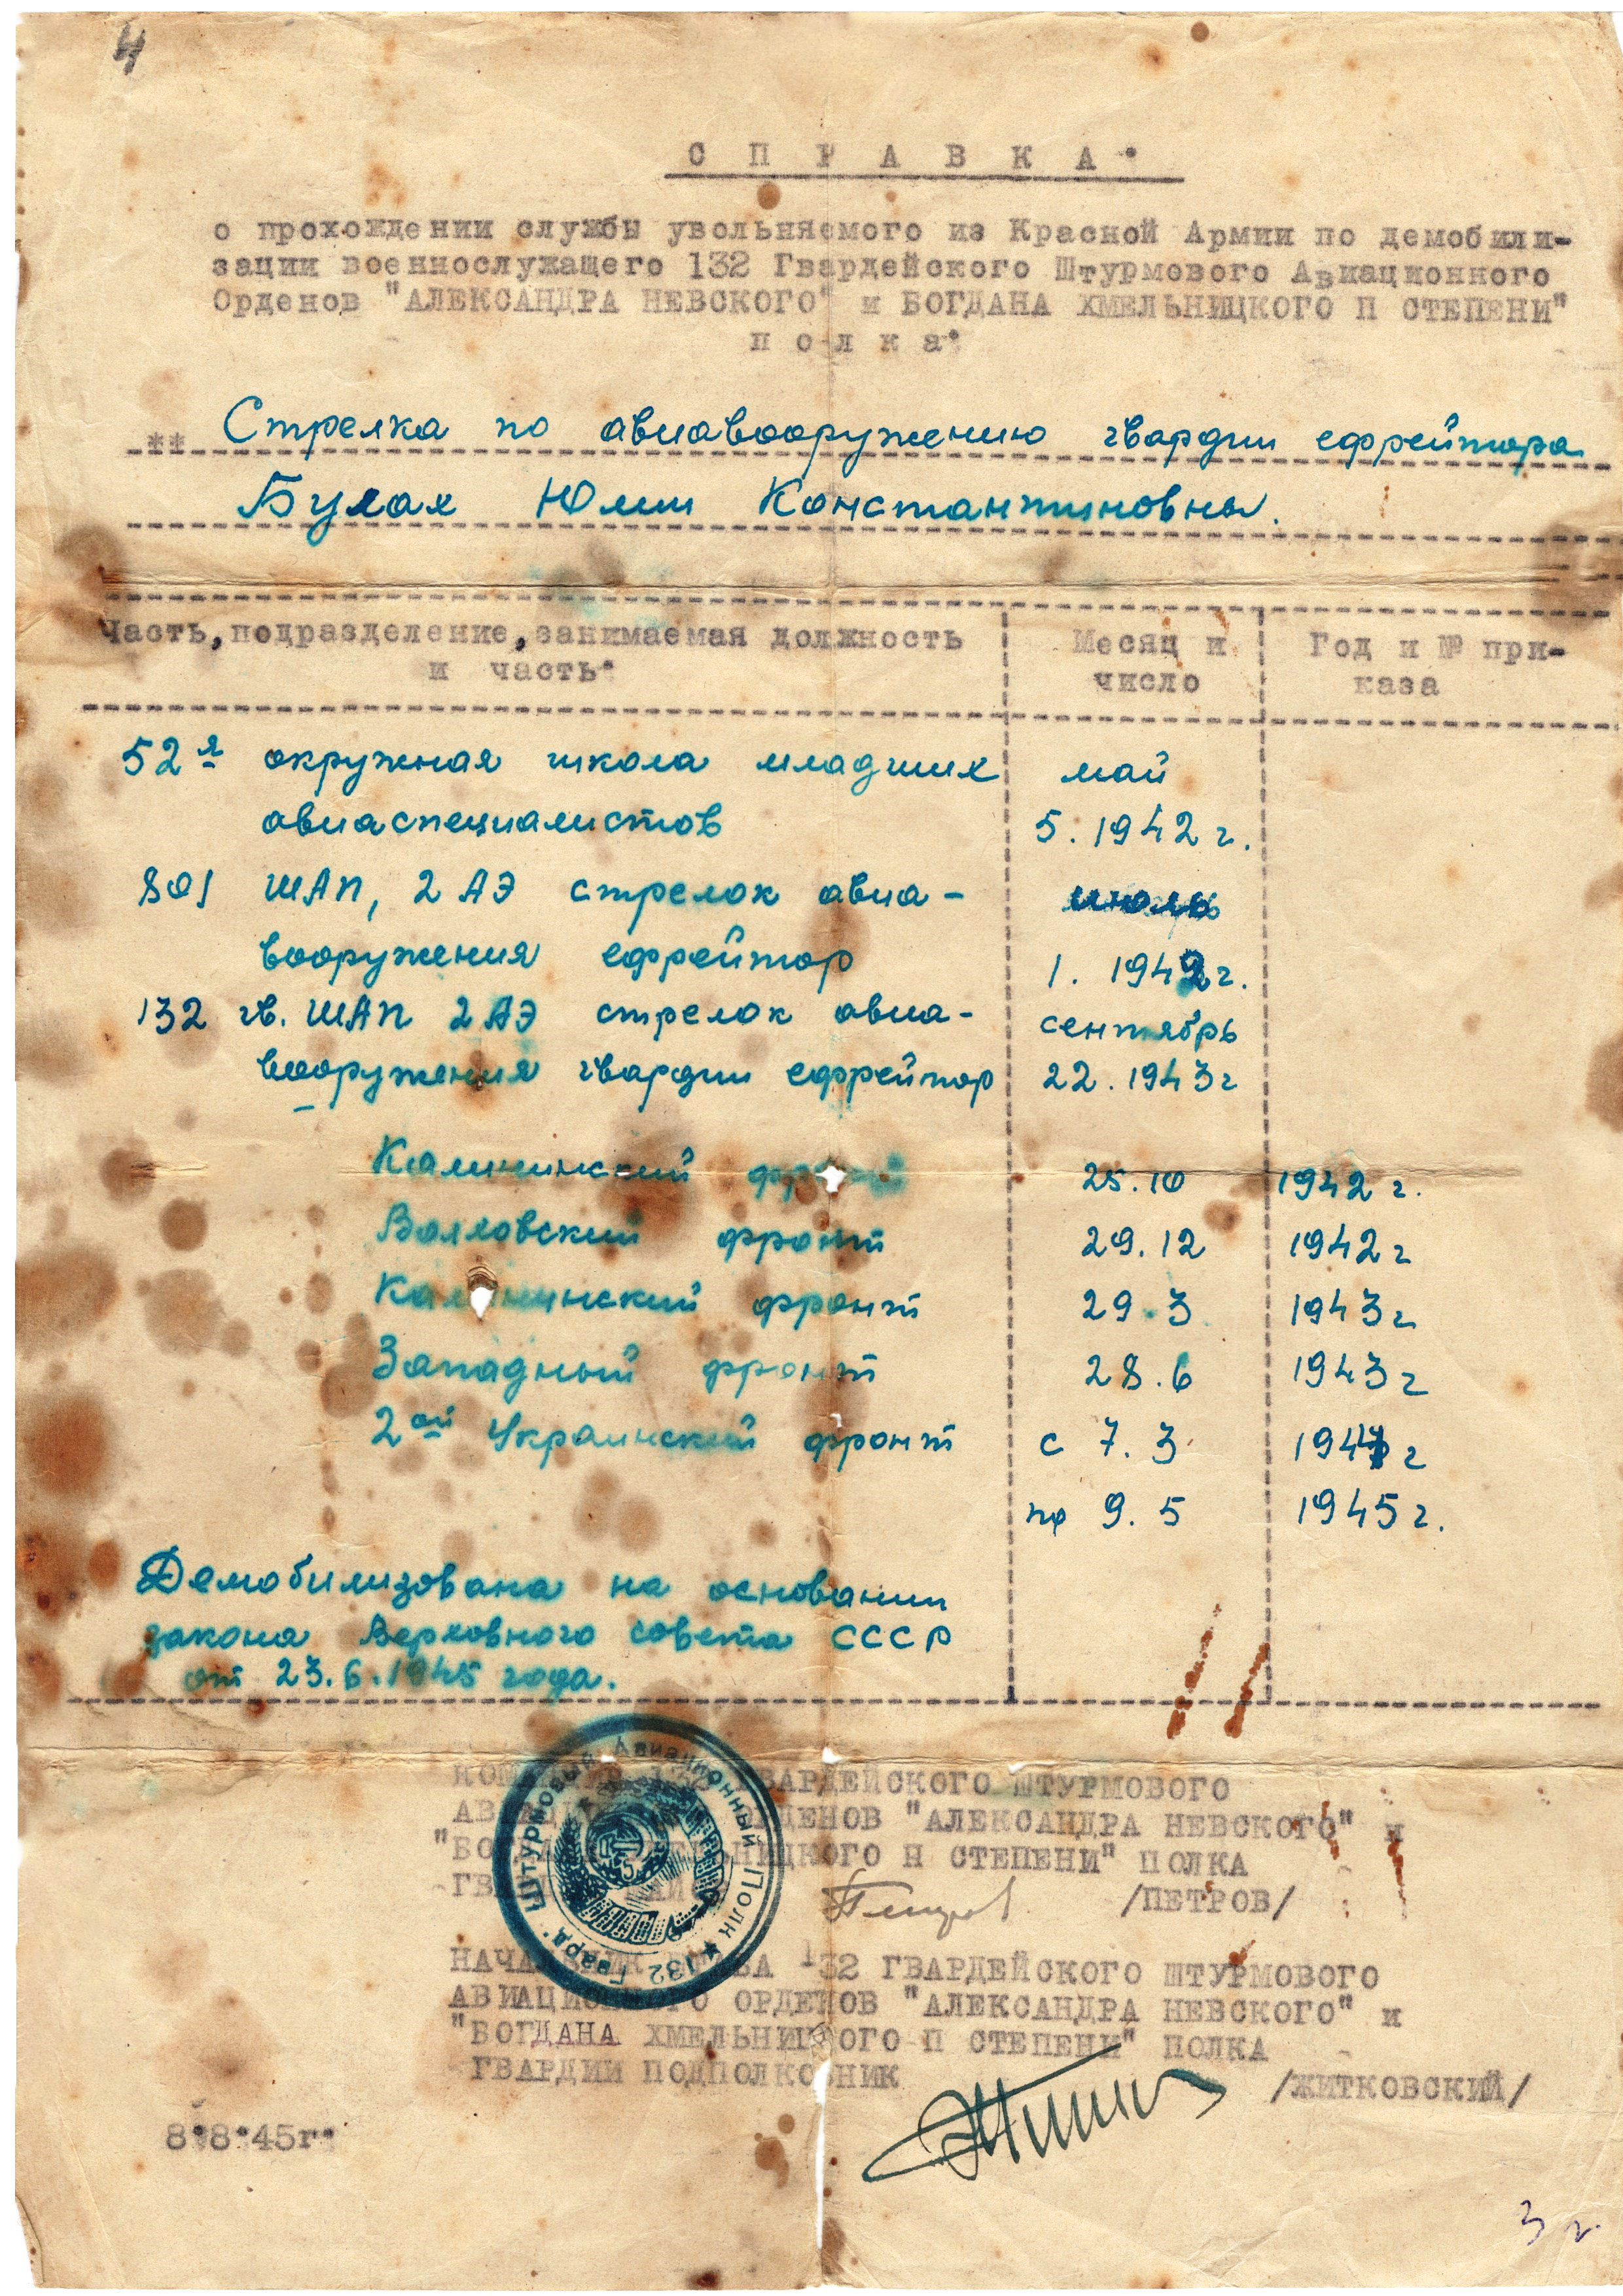 4
СПРАВКА.
о прохождении службы увольняемого из Красной Армии по демобили-
зации военнослужащего 132 Гвардейского Штурмового Авиационного
Орденов "АЛЕКСАНДРА НЕВСКОГО" и БОГДАНА ХМЕЛЬНИЦКОГО П СТЕПЕНИ"
полка.
** Стрелка по авиавооружению гвардии ефрейтора
Булах Юлии Константиновны.
Часть, подразделение, занимаемая должность Месяц и Год и № при-
и часть. число каза
52я окружная школа младших май
авиаспециалистов 5. 1942 г.
801 ШАП, 2 АЭ стрелок авиа- июль
вооружения ефрейтор 1. 1942 г.
132 гв. ШАП 2 АЭ стрелок авиа- сентябрь
вооружения гвардии ефрейтор 22. 1943 г
Калининский фронт 25.10 1942 г.
Волховский фронт 29.12 1942 г
Калининский фронт 29.3 1943 г
Западный фронт 28.6 1943 г
2ой Украинский фронт с 7.3 1944 г
по 9.5 1945 г.
Демобилизована на основании
закона Верховного совета СССР
от 23.6.1945 года.
КОМАНДИР 132 ГВАРДЕЙСКОГО ШТУРМОВОГО
АВИАЦИОННОГО ОРДЕНОВ "АЛЕКСАНДРА НЕВСКОГО" и
"БОГДАНА ХМЕЛЬНИЦКОГО П СТЕПЕНИ" ПОЛКА
Петров /ПЕТРОВ/
132 Гвард. Штурмовый Авиационный Полк
НАЧАЛЬНИК ШТАБА 132 ГВАРДЕЙСКОГО ШТУРМОВОГО
АВИАЦИОННОГО ОРДЕНОВ "АЛЕКСАНДРА НЕВСКОГО" и
"БОГДАНА ХМЕЛЬНИЦКОГО П СТЕПЕНИ" ПОЛКА
ГВАРДИИ ПОДПОЛКОВНИК /ЖИТКОВСКИЙ/
8.8.45г.
3 г.